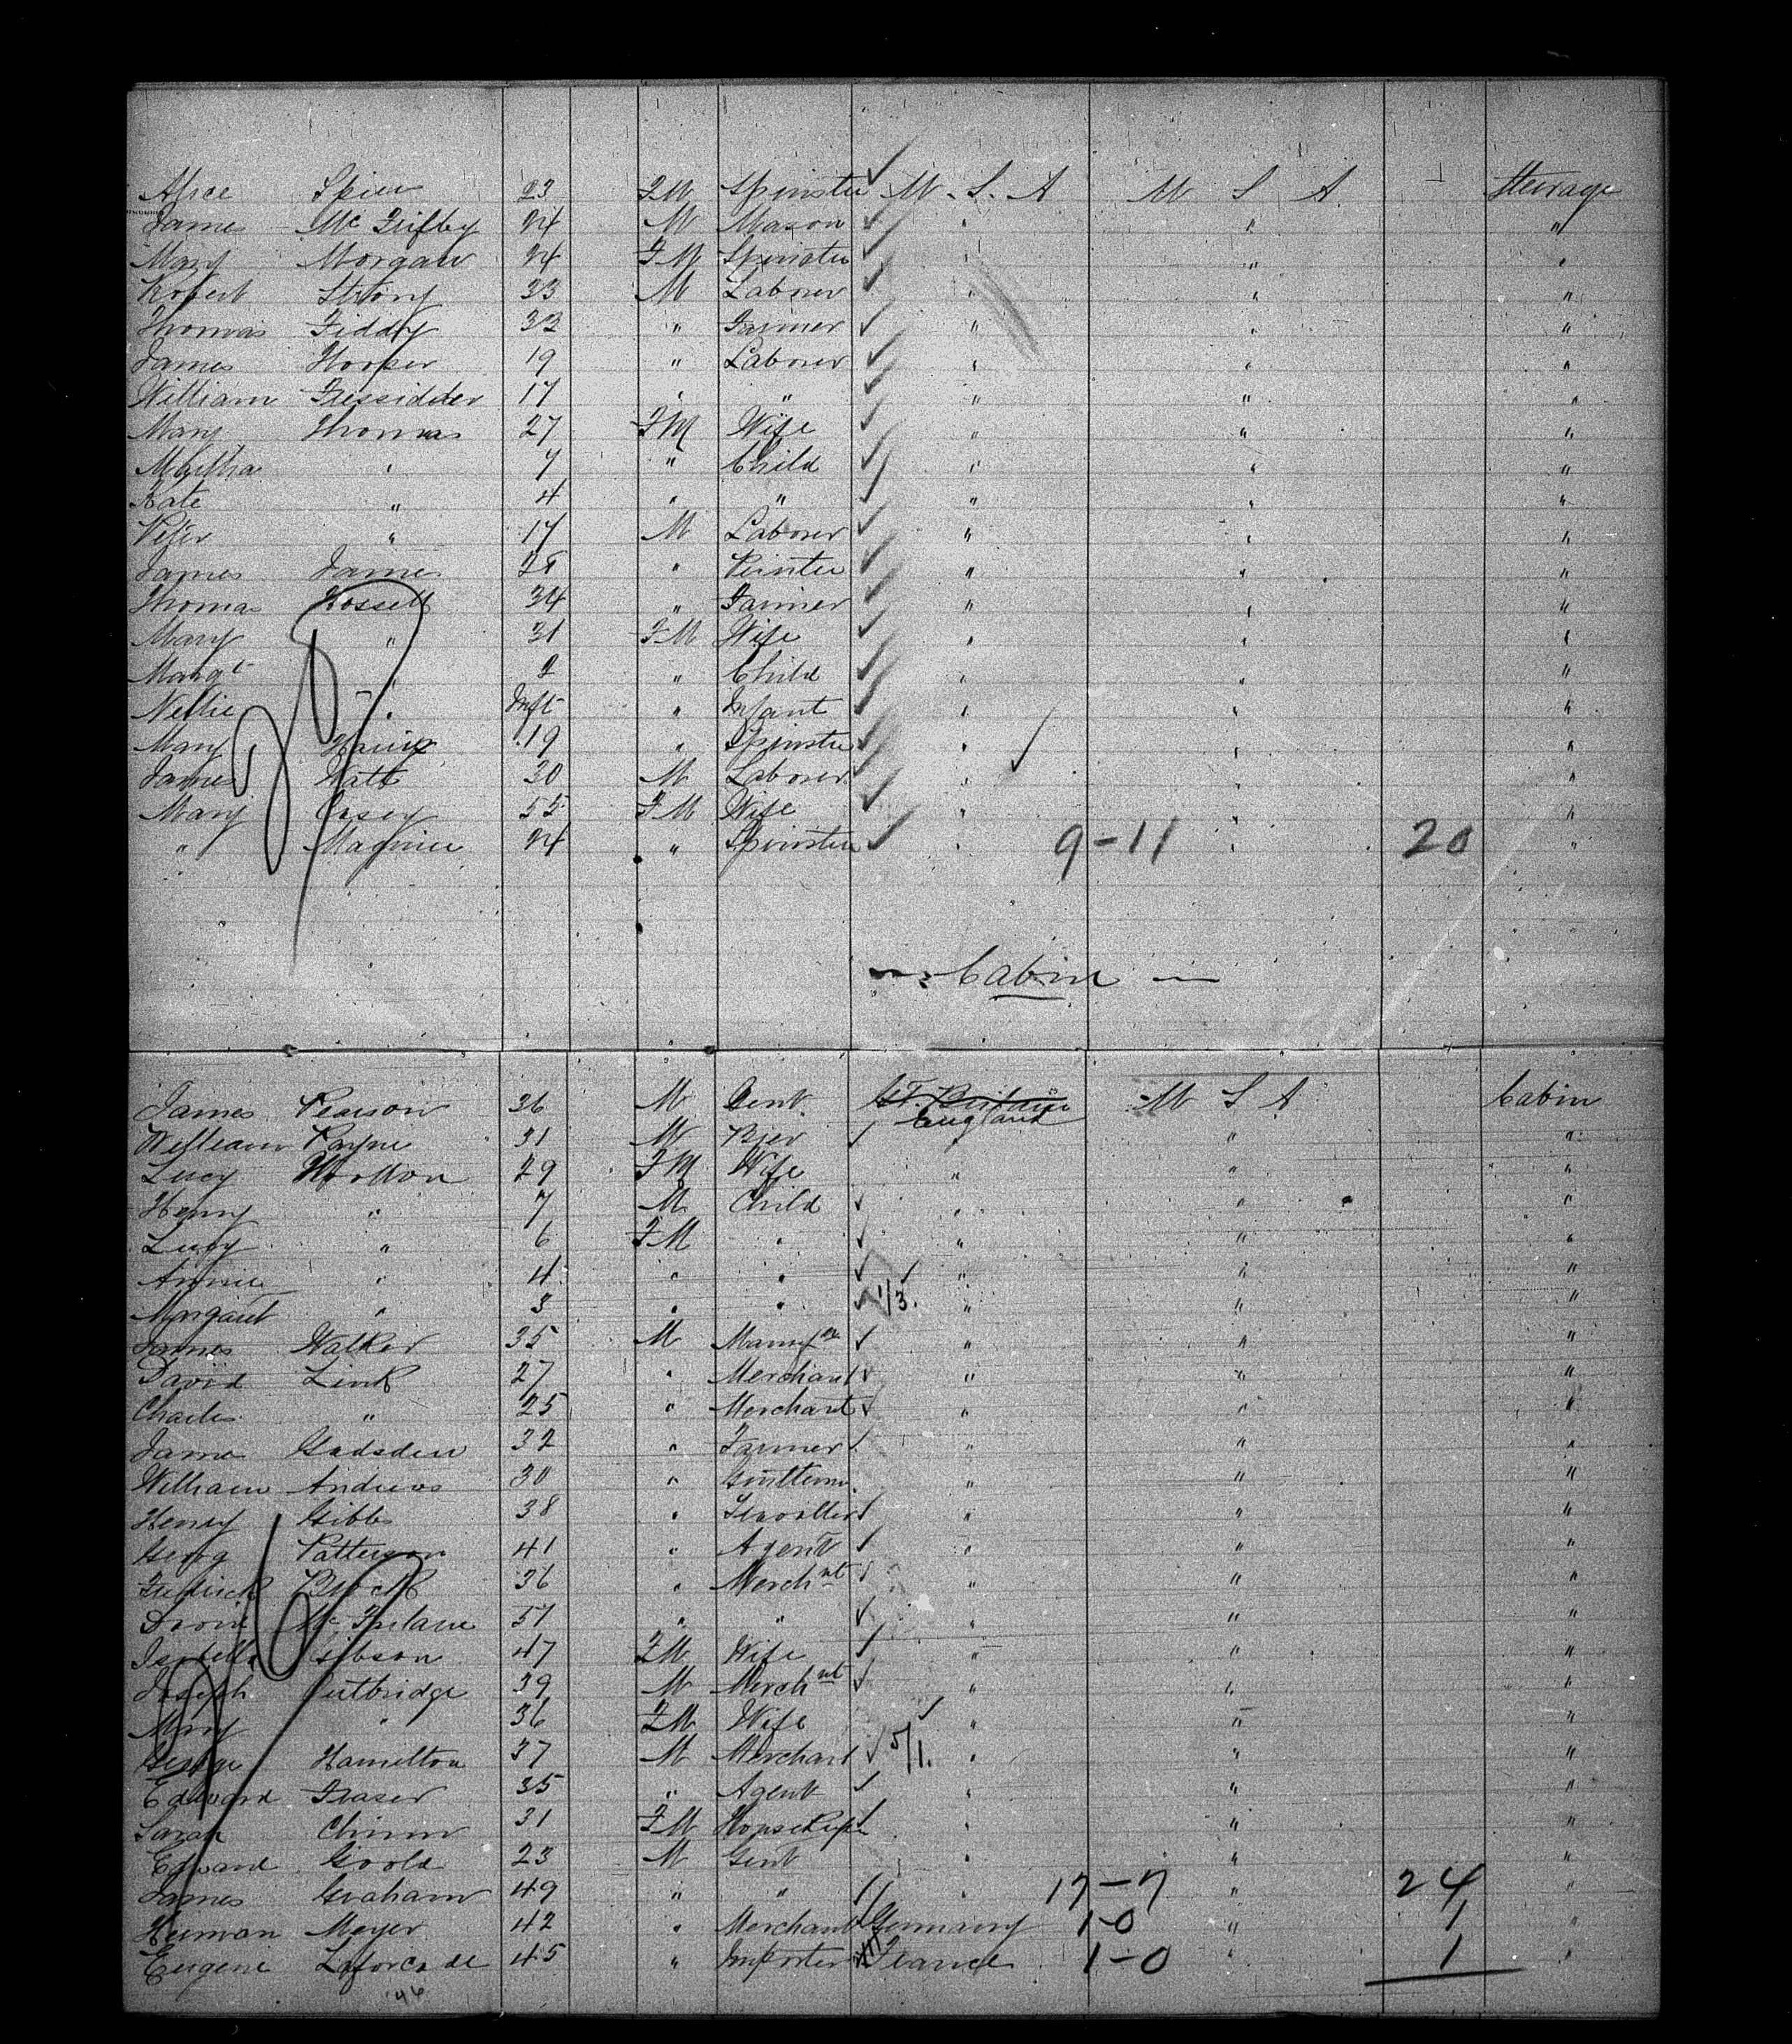 Alice Spier 23 FM Spinster U. S. A U S A Steerage
James Mc 24 M Mason " " "
Mary Morgan 24 FM Spinster " " "
Robert Strong 33 M Laborer " " "
Thomas Fiddy 32 " Farmer " " "
James Hooper 19 " Laborer " " "
William Tressidder 17 " " " " "
Mary Thomas 27 FM Wife " " "
Martha " 7 " Child " " "
Kate " 4 " " " " "
Peter " 17 M Laborer " " "
James James 25 " Printer " " "
Thomas Hossell 34 " Farmer " " "
Mary " 31 FM Wife " " "
Margt " 2 " Child " " "
Nellie " Inft " Infant " " "
Mary 19 " Spinster " " "
James Watt 30 M Laborer " " "
Mary Casey 55 FM Wife " " "
" Maguire 24 " Spinster " 9-11 " 20 "
Cabin
James Pearson 36 M Gent Gt. Britain England U S A Cabin
William Payne 31 M " " "
Lucy Horton 29 FM Wife " " "
Henry " 7 M Child " " "
Lucy " 6 FM " " " "
Annie " 4 " " " " "
Margaret " 3 " " 1/3. " " "
James Walker 35 M Manufr " " "
David Link 27 " Merchant " " "
Charles " 25 " Merchant " " "
James Gadsden 32 " Farmer " " "
William Andrews 30 " Gentlemn. " " "
Henry Gibbs 38 " Traveller " " "
Georg Patterson 41 " Agent " " "
Fredrick Brock 36 " Merchnt " " "
Mc Farlane 51 " " " " "
Isabella Gibson 47 FM Wife " " "
Joseph Outbridge 39 M Merchnt " " "
Mary " 36 FM Wife " " "
George Hamilton 37 M Merchant 5/1. " " "
Edward Fraser 35 " Agent " " "
Sarah Chinn 31 FM " " "
Edward Goold 23 M Gent " " "
James Graham 49 " " " 17-7 " 24 "
Herman Meyer 42 " Merchant Germany 1-0 " 1 "
Eugene Laforcade 45 " Importer France 1-0 " 1 "
46